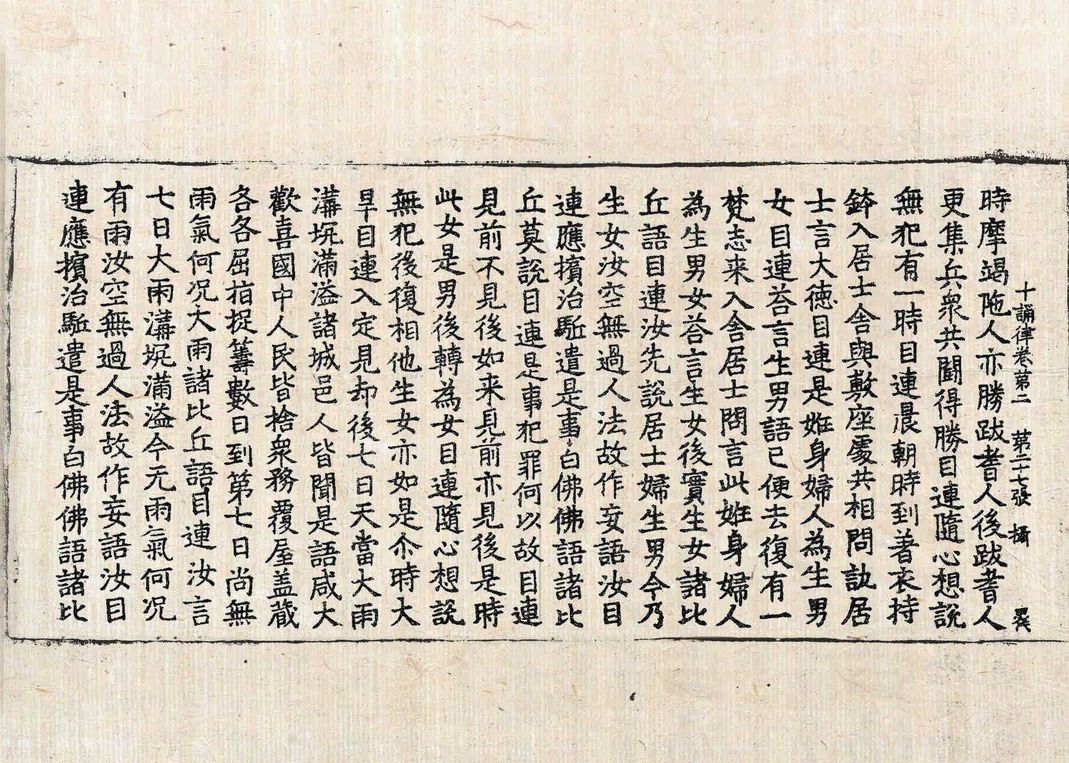 十誦律卷第二 第二十七張 橘
時摩竭陁人亦勝跋耆人後跋耆人
更集兵衆共鬪得勝目連隨心想說
無犯有一時目連晨朝時到著衣持
鉢入居士舍與敷座處共相問訊居
士言大徳目連是姙身婦人為生男
女目連荅言生男語已便去復有一
梵志来入舍居士問言此姙身婦人
為生男女荅言生女後實生女諸比
丘語目連汝先說居士婦生男今乃
生女汝空無過人法故作妄語汝目
連應擯治駈遣是事白佛佛語諸比
丘莫說目連是事犯罪何以故目連
見前不見後如来見前亦見後是時
此女是男後轉為女目連隨心想說
無犯後復相他生女亦如是尒時大
旱目連入定見却後七日天當大雨
溝坑滿溢諸城邑人皆聞是語咸大
歡喜國中人民皆捨衆務覆屋盖蔵
各各屈指捉籌數日到第七日尚無
雨氣何况大雨諸比丘語目連汝言
七日大雨溝坑滿溢今元雨氣何况
有雨汝空無過人法故作妄語汝目
連應擯治駈遣是事白佛佛語諸比